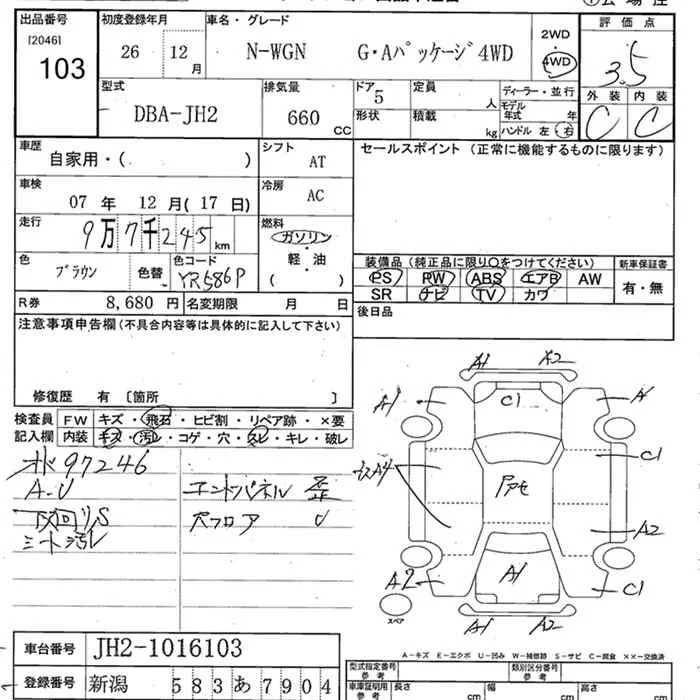 出品番号 初度登録年月 車名・グレード 評価点
[2046] 103 26 12月 N-WGN G・Aパッケージ4WD 2WD 4WD 3.5
型式 排気量 ドア 定員 ディーラー・並行 外装 内装
DBA-JH2 660 CC 5 人 モデル年式 年 C C
形状 積載 kg ハンドル 左・右
車歴 自家用・( ) シフト AT セールスポイント (正常に機能するものに限ります)
車検 07 年 12 月( 17 日) 冷房 AC
走行 9万7千245km 燃料 ガソリン・軽・油 ( )
色 ブラウン 色替 色コード YR586P
装備品(純正品に限り○をつけてください) 新車保証書
PS PW ABS エアB AW 有・無
SR ナビ TV カワ
R券 8,680 円 名変期限 月 日 後日品
注意事項申告欄(不具合内容等は具体的に記入して下さい)
修復歴 有 〔箇所 〕
検査員記入欄 FW キズ・飛石・ヒビ割・リペア跡・×要
内装 キズ・汚レ・コゲ・穴・スレ・キレ・破レ
97246
A-U エンドパネル 歪
下回リS フロア U
シート汚レ
A1 A2
C1
A1 A
A4 C1
A2
A2 A1 C1
A1 A2
スペア
A-キズ E-エクボ U-凹み W-補修跡 S-サビ C-腐食 ××-交換済
車台番号 JH2-1016103
型式指定番号 参考 類別区分番号 参考
登録番号 新潟 583 あ 7904
車庫証明用 参考 長さ cm 幅 cm 高さ cm